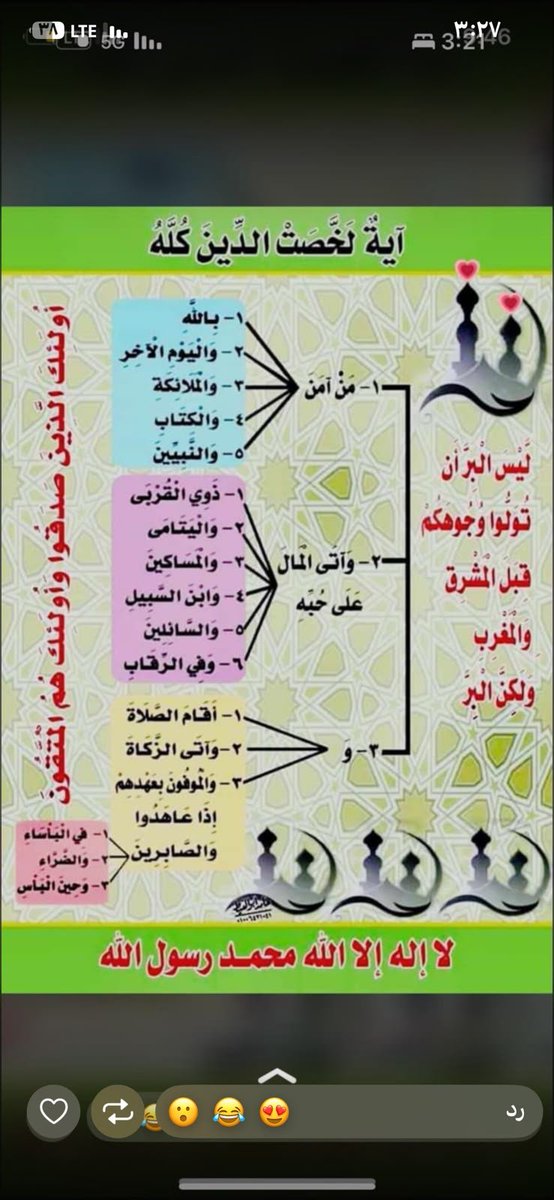 ٣:٢٧
LTE
٣٨
5G
3:21
آيةٌ لَخَّصَتْ الدِّينَ كُلَّهُ
لَيْسَ الْبِرَّ أَن
تُوَلُّوا وُجُوهَكُمْ
قِبَلَ الْمَشْرِقِ
وَالْمَغْرِبِ
وَلَكِنَّ الْبِرَّ
١- مَنْ آمَنَ
١- بِاللَّهِ
٢- وَالْيَوْمِ الْآخِرِ
٣- وَالْمَلَائِكَةِ
٤- وَالْكِتَابِ
٥- وَالنَّبِيِّينَ
٢- وَآتَى الْمَالَ
عَلَى حُبِّهِ
١- ذَوِي الْقُرْبَى
٢- وَالْيَتَامَى
٣- وَالْمَسَاكِينَ
٤- وَابْنَ السَّبِيلِ
٥- وَالسَّائِلِينَ
٦- وَفِي الرِّقَابِ
٣- وَ
١- أَقَامَ الصَّلَاةَ
٢- وَآتَى الزَّكَاةَ
٣- وَالْمُوفُونَ بِعَهْدِهِمْ
إِذَا عَاهَدُوا
وَالصَّابِرِينَ
١- فِي الْبَأْسَاءِ
٢- وَالضَّرَّاءِ
٣- وَحِينَ الْبَأْسِ
أُولَئِكَ الَّذِينَ صَدَقُوا وَأُولَئِكَ هُمُ الْمُتَّقُونَ
لا إله إلا الله محمـد رسول الله
رد